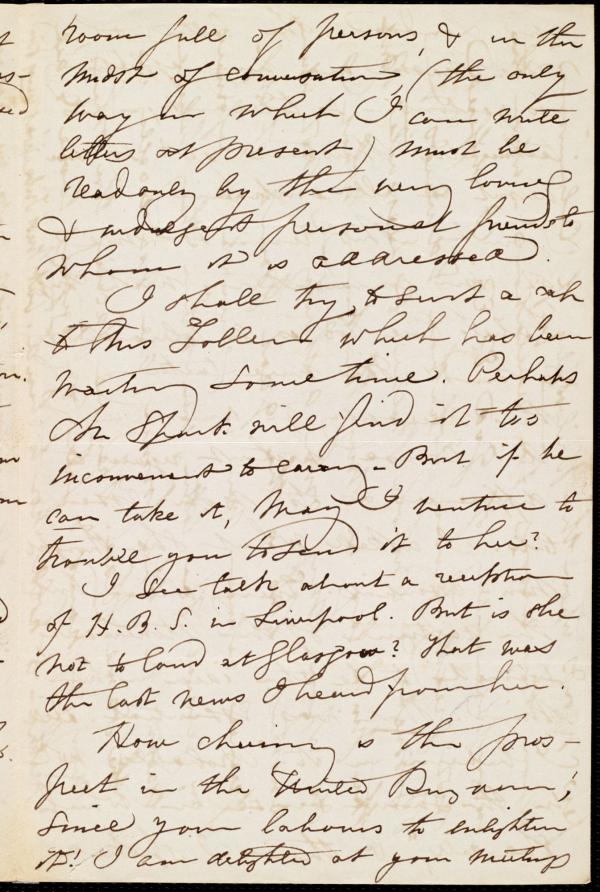 room full of persons, & in the
midst of conversation, (the only
way in which I can write
letters at present) must be
read only by the very loving
& indulgent personal friend to
whom it is addressed.
I shall try to send a
to this which has been
waiting some time. Perhaps
will find it too
inconvenient to carry - But if he
can take it, may I venture to
trouble you to send it to her?
I see talk about a reception
of H. B. S. in Liverpool. But is she
not to land at Glasgow? That was
the last news I heard from her.
How cheering is the pros-
pect in the United Kingdom,
since your labours to enlighten
it! I am delighted at your meetings